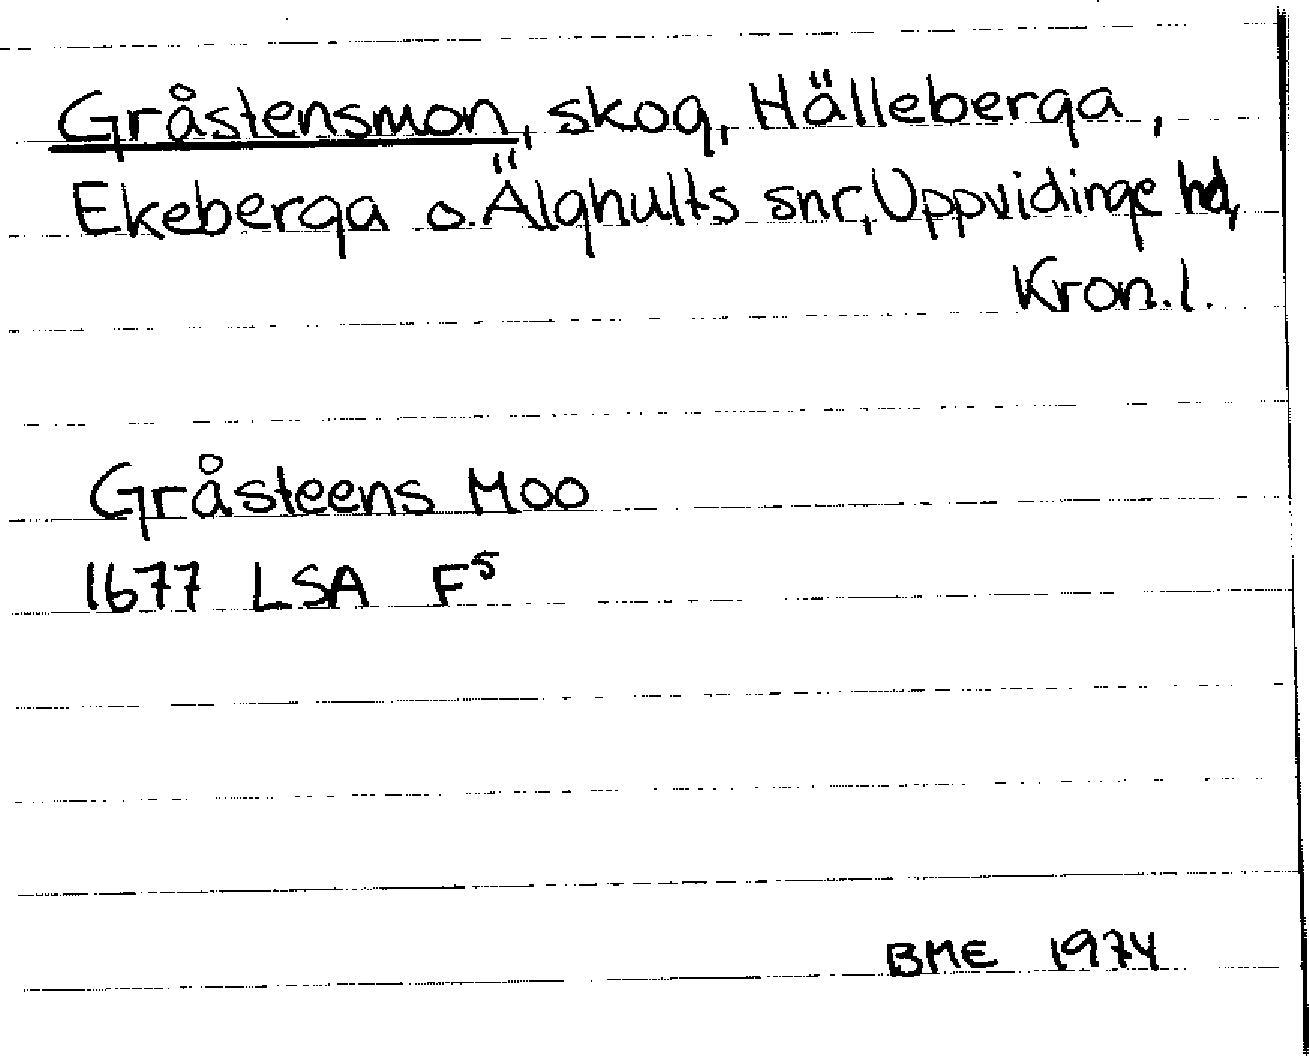 Gråstensmon, skog, Hälleberga,
Ekeberga o. Älghults snr, Uppvidinge hd,
Kron. l.
Gråsteens Moo
1677 LSA F5
BME 1974